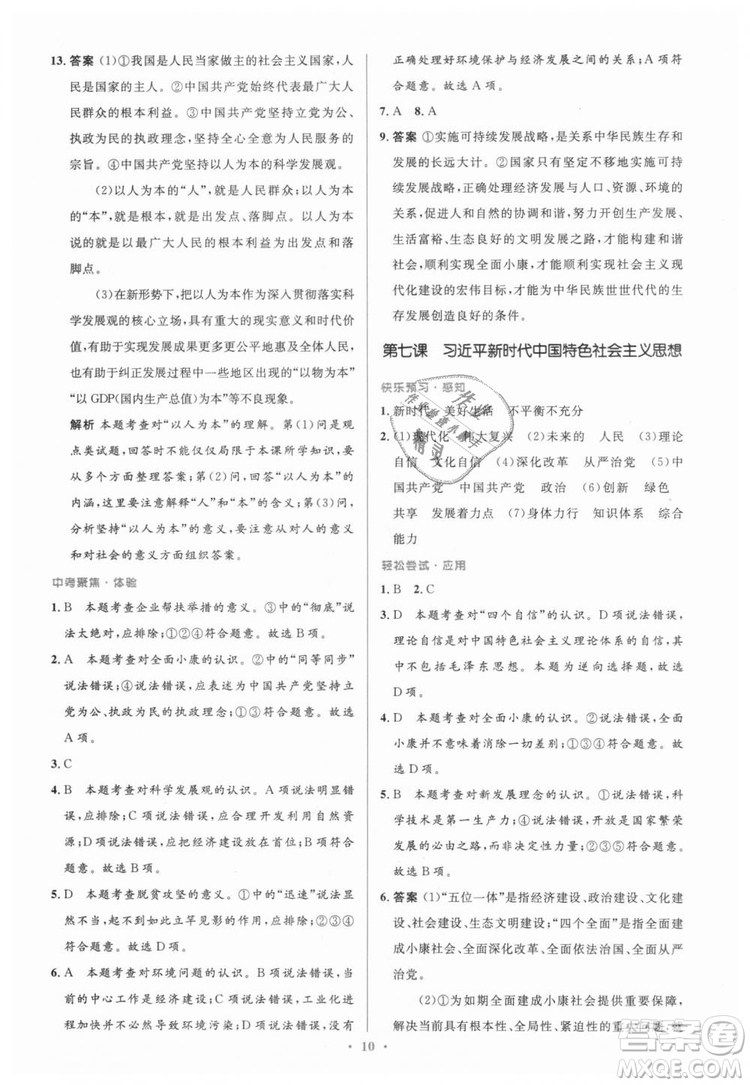 13. 答案 (1)①我国是人民当家做主的社会主义国家，人
民是国家的主人。②中国共产党始终代表最广大人
民群众的根本利益。③中国共产党坚持立党为公、
执政为民的执政理念，坚持全心全意为人民服务的
宗旨。④中国共产党坚持以人为本的科学发展观。
(2)以人为本的“人”，就是人民群众；以人为本
的“本”，就是根本，就是出发点、落脚点。以人为本
说的就是以最广大人民的根本利益为出发点和落
脚点。
(3)在新形势下，把以人为本始终作为贯彻落实科
学发展观的核心立场，具有重大的现实意义和深远
影响：有助于形成以人为本的价值观念和工作作风，
有助于纠正发展过程中一些地区出现的“以物为本”
“以GDP(国内生产总值)为本”等不良现象。
解析 本题考查对“以人为本”的认识。第(1)问是观
点类试题，回答时不能仅局限于本课所学知识，我们
要多方面整理答案；第(2)问考查对“以人为本”的
内涵，要注意解释“人”和“本”的含义；第(3)问，应
分析坚持“以人为本”对党、对人民、对国家的意义
和对社会的意义方面组织答案。
中考聚焦·体验
1. B 本题考查企业帮扶举措的意义。③中的“彻底”说
法太绝对，应排除；①②④符合题意。故选B项。
2. A 本题考查对全面小康的认识。②中的“同等同步”
说法错误；④说法错误，应为中国共产党坚持立党
为公、执政为民的执政理念；①③符合题意。故选
A项。
3. C
4. B 本题考查对科学发展观的认识。A项说法明显错
误，应排除；C项说法错误，应为合理开发和利用自然
资源；D项说法错误，应把经济建设放在首位；B项符
合题意。故选B项。
5. D 本题考查脱贫攻坚的意义。④中的“迅速”说法夸
大了在此起到如此立竿见影的作用，应排除；①②③
符合题意。故选D项。
6. A 本题考查对环境问题的认识。B项说法错误，当
前的中心工作是经济建设；C项说法错误，工业化建
设不必然会导致环境污染；D项说法错误，我们没有
正确处理好环境保护与经济发展之间的关系；A项符
合题意。故选A项。
7. A 8. A
9. 答案 ①实施可持续发展战略，是关系中华民族生存
和发展的长远大计。②只有认真贯彻落实可持续发
展战略，正确处理经济发展与人口、资源、环境的关
系，促进人和自然的协调与和谐，努力开创生产发展、
生活富裕、生态良好的文明发展之路，才能构建和谐
社会，顺利实现全面小康，才能顺利实现社会主义现
代化建设的宏伟目标，才能为中华民族世世代代的
发展创造良好的条件。
第七课 习近平新时代中国特色社会主义思想
快乐预习·感知
1. 新时代 美好生活 不平衡不充分
2. (1)现代化 伟大复兴 (2)未来的 人民 (3)理论
自信 文化自信 (4)深化改革 从严治党 (5)中
国共产党 中国共产党 政治 (6)创新 绿色
共享 发展着力点 (7)身体力行 知识体系 综合
能力
轻松尝试·应用
1. B 2. C
3. D 本题考查对“四个自信”的认识。D项说法错误，
理论自信是对中国特色社会主义理论体系的自信，其
中不包括毛泽东思想。本题为逆向选择题，故选
D项。
4. D 本题考查对全面小康的认识。②说法错误，全面
小康并不意味着消除一切差别；①③④符合题意。故
选D项。
5. B 本题考查对新发展理念的认识。③说法错误，科
学技术是第一生产力；④说法错误，改革是国家繁荣
发展的必由之路；①②符合题意。故选B项。
6. 答案 (1)“五位一体”是指经济建设、政治建设、文
化建设、社会建设、生态文明建设；“四个全面”是指
全面建成小康社会、全面深化改革、全面依法治国、全面从严
治党。
(2)①为如期全面建成小康社会提供重要保障，
解决当前具有根本性、全局性、紧迫性的重大问题，
10
作业
作业检查小助手
精灵
答案圈
MXQE.COM